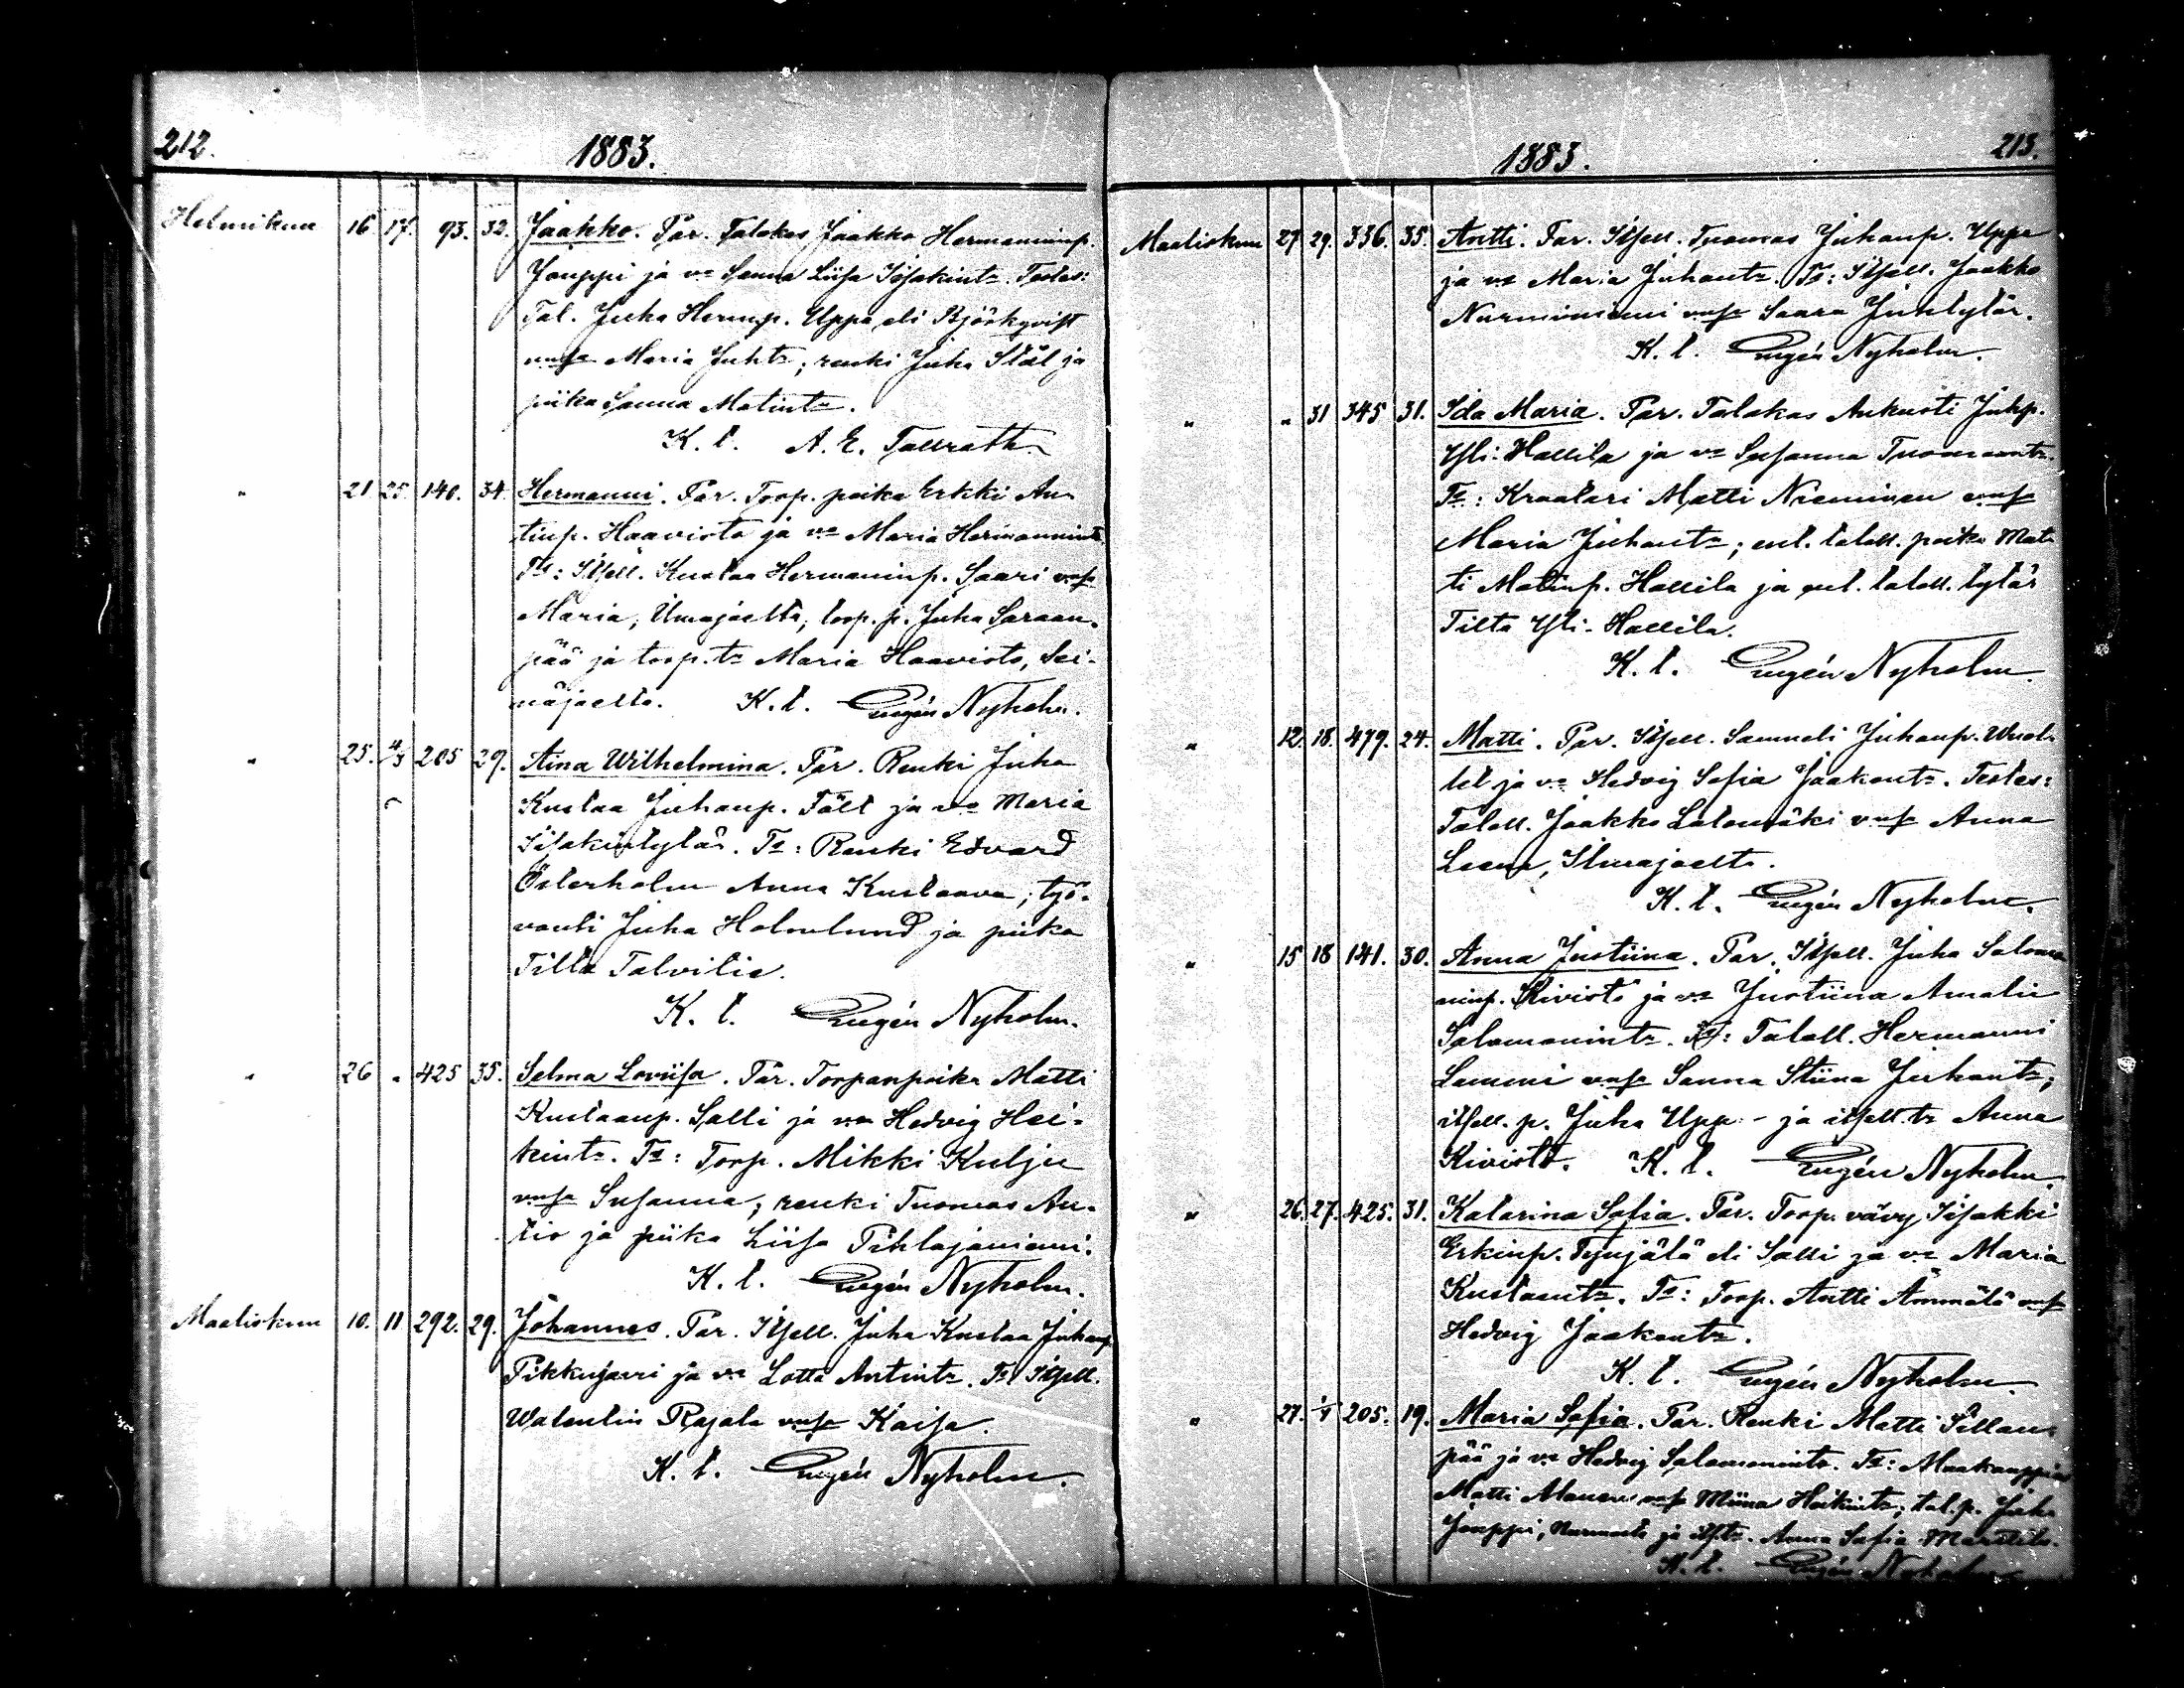 212.
1883.
Helmikuu 16. 17. 93. 32. Jaakko. Var. Talokas Jaakko Hermanninp.
Jouppi ja vo Sanna Liisa Iisakintr. Testes:
Tal. Juha Hermp. Uppa eli Björkqvist
Maria Juhtr; renki Juha Stål ja
piika Sanna Matintr.
K. t. A. E. Tallroth
" 21 25. 140. 34. Hermanni. Var. Torp. poika Erkki An-
tinp. Haavisto ja vo Maria Hermannintr.
Ts: Itsell. Kustaa Hermaninp. Saari
Maria, Ilmajoelta, torp. p. Juha Saraan-
pää ja torp. tr Maria Haavisto, Sei-
näjoelta. K. t. Eugén Nyholm.
" 25. 4/3 205 29. Aina Wilhelmina. Var. Renki Juha
Kustaa Juhanp. Fält ja vo Maria
Iisakintytär. Ts: Renki Edvard
Österholm Anna Kustaava; työ-
vouti Juha Holmlund ja piika
Tilta Talvitie.
K. t. Eugén Nyholm.
" 26 " 425 35. Selma Loviisa. Var. Torpanpoika Matti
Kustaanp. Salli ja vo Hedvig Hei-
kintr. Ts: Torp. Mikki Kulju
Susanna; renki Tuomas An-
tio ja piika Liisa Pihlajaniemi.
K. t. Eugén Nyholm.
Maaliskuu 10. 11 292. 29. Johannes. Var. Itsell. Juha Kustaa Juhanp.
Pikkujouri ja vo Lotta Antintr. Ts Itsell.
Walentin Rajala Kaisa.
K. t. Eugén Nyholm.
1883.
213.
Maaliskuu 27 29. 336. 35. Antti. Var. Itsell. Tuomas Juhanp. Uppa
ja vo Maria Juhantr. Ts: Itsell. Jaakko
Nurmimiemi Saara Juhtytär.
K. t. Eugén Nyholm.
" " 31 345 31. Ida Maria. Var. Talokas Aukusti Juhp.
Yli-Hallila ja vo Susanna Tuomaantr.
Ts: Kraatari Matti Nieminen
Maria Juhantr; ent. taloll. poika Mat-
ti Matinp. Hallila ja ent. taloll. tytär
Tilta Yli-Hallila.
K. t. Eugén Nyholm.
" 12. 18. 479. 24. Matti. Var. Itsell. Samueli Juhanp.
ja vo Hedvig Sofia Jaakontr. Testes:
Taloll. Jaakko Latomäki Anna
Leena, Ilmajoelta.
K. t. Eugén Nyholm.
" 15 18 141. 30. Anna Justiina. Var. Itsell. Juha Salomo-
ninp. Kivistö ja vo Justiina Amalia
Salomonintr. Ts: Taloll. Hermanni
Lammi Sanna Stiina Juhantr;
itsell. p. Juha Uppa ja itsell. tr Anna
Kivistö. K. t. Eugén Nyholm.
" 26. 27. 425. 31. Katarina Sofia. Var. Torp. vävy Iisakki
Erkinp. Tynjälä eli Salli ja vo Maria
Kustaantr. Ts: Torp. Antti Ämmälä
Hedvig Jaakontr.
K. t. Eugén Nyholm.
" 27. 1/4 205. 19. Maria Sofia. Var. Renki Matti Sillan-
pää ja vo Hedvig Salomonintr. Ts: Maakauppias
Matti Miina Heikintr; tal. p. Juha
Jouppi, Nurmosta ja Anna Sofia Marttila.
K. t. Eugén Nyholm